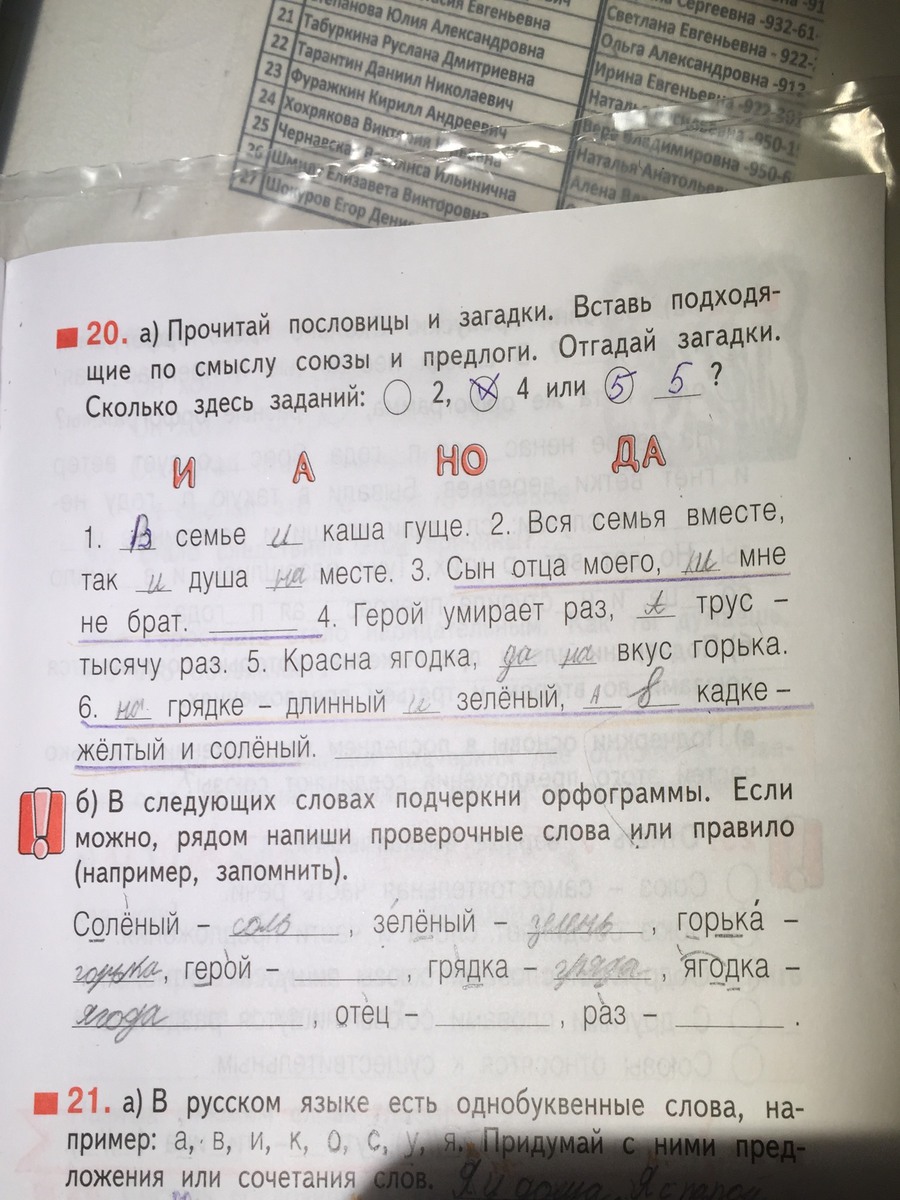 Евгеньевна
21 Степанова Юлия Александровна
22 Табуркина Руслана Дмитриевна
23 Тарантин Даниил Николаевич
24 Фуражкин Кирилл Андреевич
25 Хохрякова Виктория
26 Чернавская Ильинична
27 Елизавета Викторовна
Шокуров Егор
Сергеевна -932-61-
Светлана Евгеньевна - 922-
Ольга Александровна -912
Ирина Евгеньевна -922-
Наталья -950-
Вера Владимировна -950-6
Наталья Анатольевна
Алёна
20. а) Прочитай пословицы и загадки. Вставь подходя-
щие по смыслу союзы и предлоги. Отгадай загадки.
Сколько здесь заданий: 2, 4 или 5 5 ?
И А НО ДА
1. В семье и каша гуще. 2. Вся семья вместе,
так и душа на месте. 3. Сын отца моего, ни мне
не брат. 4. Герой умирает раз, А трус –
тысячу раз. 5. Красна ягодка, да на вкус горька.
6. на грядке – длинный и зелёный, А в кадке –
жёлтый и солёный.
б) В следующих словах подчеркни орфограммы. Если
можно, рядом напиши проверочные слова или правило
(например, запомнить).
Солёный – соль зелёный – зелень , горька –
горька, герой – грядка – гряда , ягодка –
ягода , отец – , раз – .
21. а) В русском языке есть однобуквенные слова, на-
пример: а, в, и, к, о, с, у, я. Придумай с ними пред-
ложения или сочетания слов.